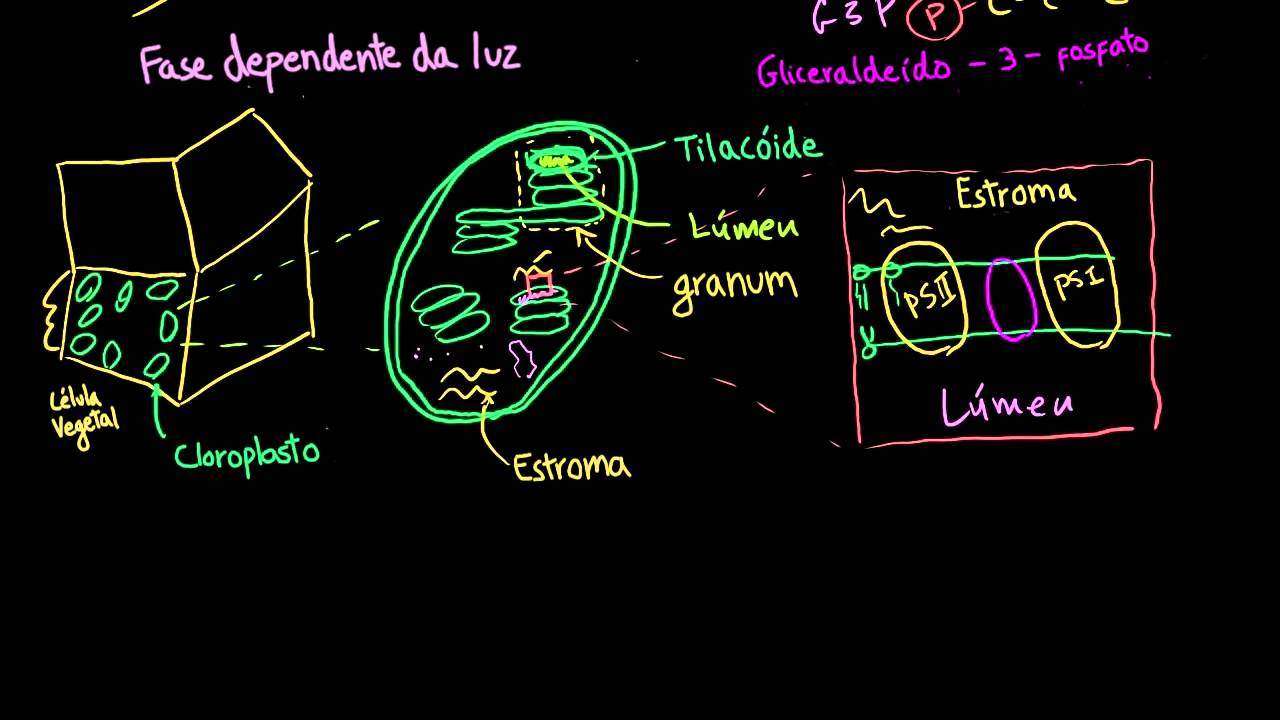 G3P P
Fase dependente da luz
Gliceraldeído - 3 - fosfato
Tilacóide
Lúmeu
granum
Estroma
PSII
PSI
Lúmeu
Célula
Vegetal
Cloroplasto
Estroma